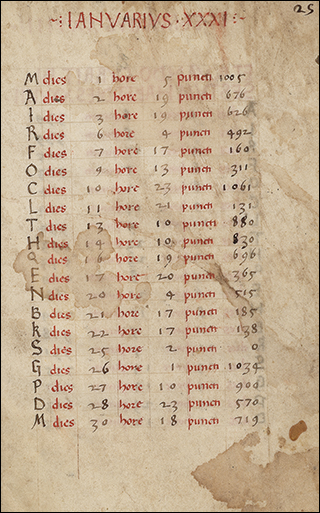 25
IANVARIVS·XXXI·
M dies 1 hore 5 puncti 1005
A dies 2 hore 19 puncti 676
I dies 3 hore 19 puncti 626
R dies 6 hore 4 puncti 492
F dies 7 hore 17 puncti 160
O dies 9 hore 13 puncti 311
C dies 10 hore 23 puncti 1061
L dies 11 hore 21 puncti 131
T dies 13 hore 10 puncti 880
H dies 14 hore 10 puncti 830
Q dies 16 hore 19 puncti 696
E dies 17 hore 20 puncti 365
N dies 20 hore 4 puncti 515
B dies 21 hore 17 puncti 185
K dies 22 hore 17 puncti 138
S dies 25 hore 2 puncti 0
G dies 26 hore 1 puncti 1034
P dies 27 hore 10 puncti 900
D dies 28 hore 23 puncti 570
M dies 30 hore 18 puncti 719